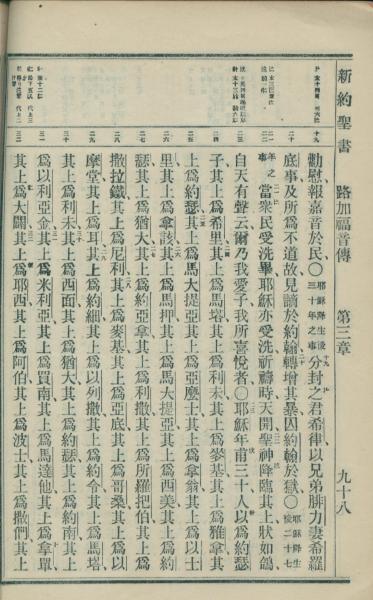 新約聖書 路加福音傳 第三章 九十八
勸慰報嘉音於民〇耶穌降生後三十年之事分封之君希律以兄弟腓力妻希羅
底事及所爲不道故見讁於約翰轉增其暴囚約翰於獄〇耶穌降生後二十七
年之事當衆民受洗畢耶穌亦受洗祈禱時天開聖神降臨其上狀如鴿
自天有聲云爾乃我愛子我所喜悅者〇耶穌年甫三十人以爲約瑟
子其上爲希里其上爲馬塔其上爲利未其上爲麥基其上爲雅拿其
上爲約瑟其上爲馬大提亞其上爲亞麼士其上爲拿翁其上爲以士
里其上爲拿該其上爲馬押其上爲馬大提亞其上爲西美其上爲約
瑟其上爲猶大其上爲約亞拿其上爲利撒其上爲所羅把伯其上爲
撒拉鐵其上爲尼利其上爲麥基其上爲亞底其上爲哥桑其上爲以
摩堂其上爲耳其上爲約細其上爲以列撒其上爲約令其上爲馬塔
其上爲利未其上爲西面其上爲猶大其上爲約瑟其上爲約南其上
爲以利亞金其上爲米利亞其上爲買南其上爲馬達他其上爲拿單
其上爲大闢其上爲耶西其上爲阿伯其上爲波士其上爲撒們其上
十九
二十
二一
二二
二三
二四
二五
二六
二七
二八
二九
三十
三一
三二